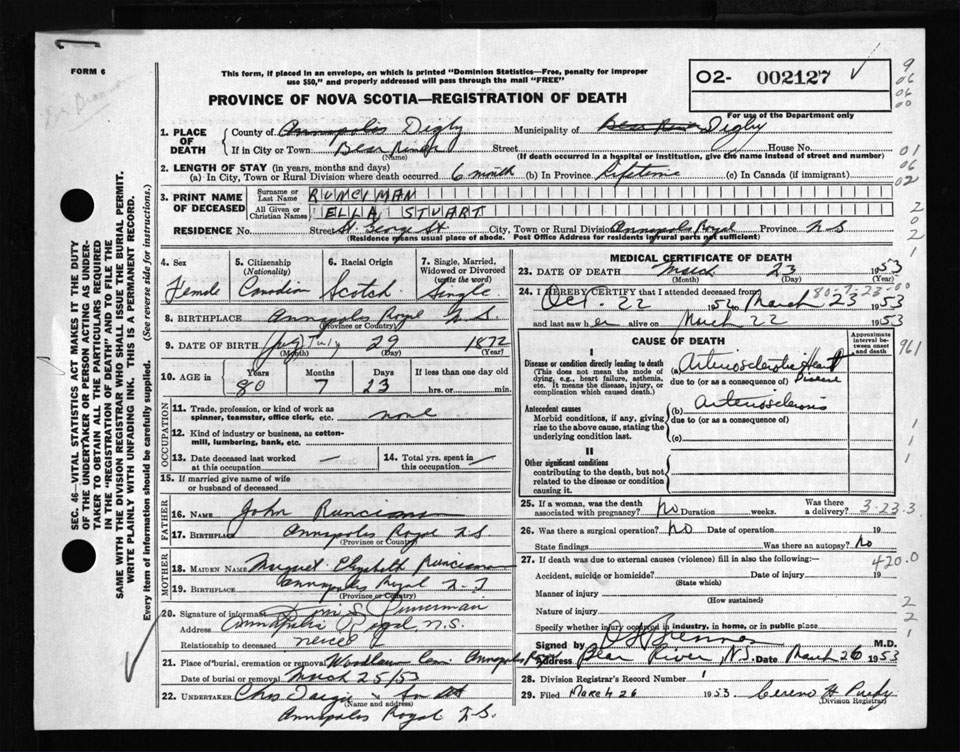 FORM 6
This form, if placed in an envelope, on which is printed "Dominion Statistics—Free, penalty for improper
use $50," and properly addressed will pass through the mail "FREE"
O2- 002127
PROVINCE OF NOVA SCOTIA—REGISTRATION OF DEATH
For use of the Department only
1. PLACE OF DEATH County of Annapolis Digby Municipality of Bear River Digby
If in City or Town Bear River (Name) Street House No.
(If death occurred in a hospital or institution, give the name instead of street and number)
2. LENGTH OF STAY (in years, months and days)
(a) In City, Town or Rural Division where death occurred 6 month (b) In Province Lifetime (c) In Canada (if immigrant)
3. PRINT NAME OF DECEASED
Surname or Last Name RUNCIMAN
All Given or Christian Names ELLA STUART
RESIDENCE No. Street St. George St City, Town or Rural Division Annapolis Royal Province N S
(Residence means usual place of abode. Post Office Address for residents in rural parts not sufficient)
4. Sex Female
5. Citizenship (Nationality) Canadian
6. Racial Origin Scotch
7. Single, Married, Widowed or Divorced (write the word) Single
8. BIRTHPLACE Annapolis Royal N.S.
(Province or Country)
9. DATE OF BIRTH July 29 1872
(Month) (Day) (Year)
10. AGE in Years 80 Months 7 Days 23 If less than one day old hrs. or min.
OCCUPATION
11. Trade, profession, or kind of work as spinner, teamster, office clerk, etc. none
12. Kind of industry or business, as cotton-mill, lumbering, bank, etc.
13. Date deceased last worked at this occupation —
14. Total yrs. spent in this occupation —
15. If married give name of wife or husband of deceased
FATHER
16. NAME John Runciman
17. BIRTHPLACE Annapolis Royal N S
(Province or Country)
MOTHER
18. MAIDEN NAME Margaret Elizabeth Runciman
19. BIRTHPLACE Annapolis Royal
(Province or Country)
20. Signature of informant
Address Annapolis Royal, N.S.
Relationship to deceased neice
21. Place of burial, cremation or removal Woodlawn Cem. Annapolis Royal
Date of burial or removal March 25/53
22. UNDERTAKER Chas
(Name and address)
Annapolis Royal N.S.
MEDICAL CERTIFICATE OF DEATH
23. DATE OF DEATH March 23 1953
(Month) (Day) (Year)
24. I HEREBY CERTIFY that I attended deceased from
Oct 22 1952 March 23 1953
and last saw her alive on March 22 1953
CAUSE OF DEATH
Approximate interval between onset and death
I
Disease or condition directly leading to death
(This does not mean the mode of dying, e.g., heart failure, asthenia, etc. It means the disease, injury, or complication which caused death.)
(a) Arteriosclerotic Heart Disease
due to (or as a consequence of)
Antecedent causes
Morbid conditions, if any, giving rise to the above cause, stating the underlying condition last.
(b) Arteriosclerosis
due to (or as a consequence of)
(c)
II
Other significant conditions
contributing to the death, but not related to the disease or condition causing it.
25. If a woman, was the death associated with pregnancy? No Duration weeks. Was there a delivery? 3-23-3
26. Was there a surgical operation? No Date of operation 19
State findings Was there an autopsy? No
27. If death was due to external causes (violence) fill in also the following: 420.0
Accident, suicide or homicide? Date of injury 19
(State which)
Manner of injury
(How sustained)
Nature of injury
Specify whether injury occurred in industry, in home, or in public place
Signed by M.D.
Address Bear River, N.S. Date March 26 1953
28. Division Registrar's Record Number 1
29. Filed March 26 1953 Cereno H Purdy
(Division Registrar)
SEC. 46—VITAL STATISTICS ACT MAKES IT THE DUTY
OF THE UNDERTAKER OR PERSON ACTING AS UNDER-
TAKER TO OBTAIN ALL THE PARTICULARS REQUIRED
IN THE "REGISTRATION OF DEATH" AND TO FILE THE
SAME WITH THE DIVISION REGISTRAR WHO SHALL ISSUE THE BURIAL PERMIT.
WRITE PLAINLY WITH UNFADING INK. THIS IS A PERMANENT RECORD.
Every item of information should be carefully supplied. (See reverse side for instructions.)
9
06
06
00
01
06
02
2
0
2
961
1
1
2
2
1